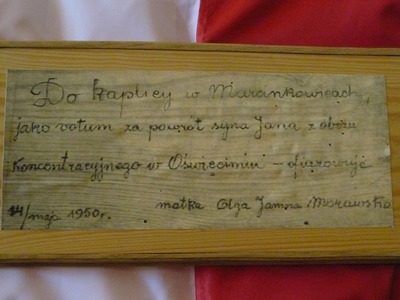 Do kaplicy w Marankowicach,
jako votum za powrót syna Jana z obozu
koncentracyjnego w Oświęcimiu - ofiarowuje
14/maja 1950r. matka Olga Janina Morawska